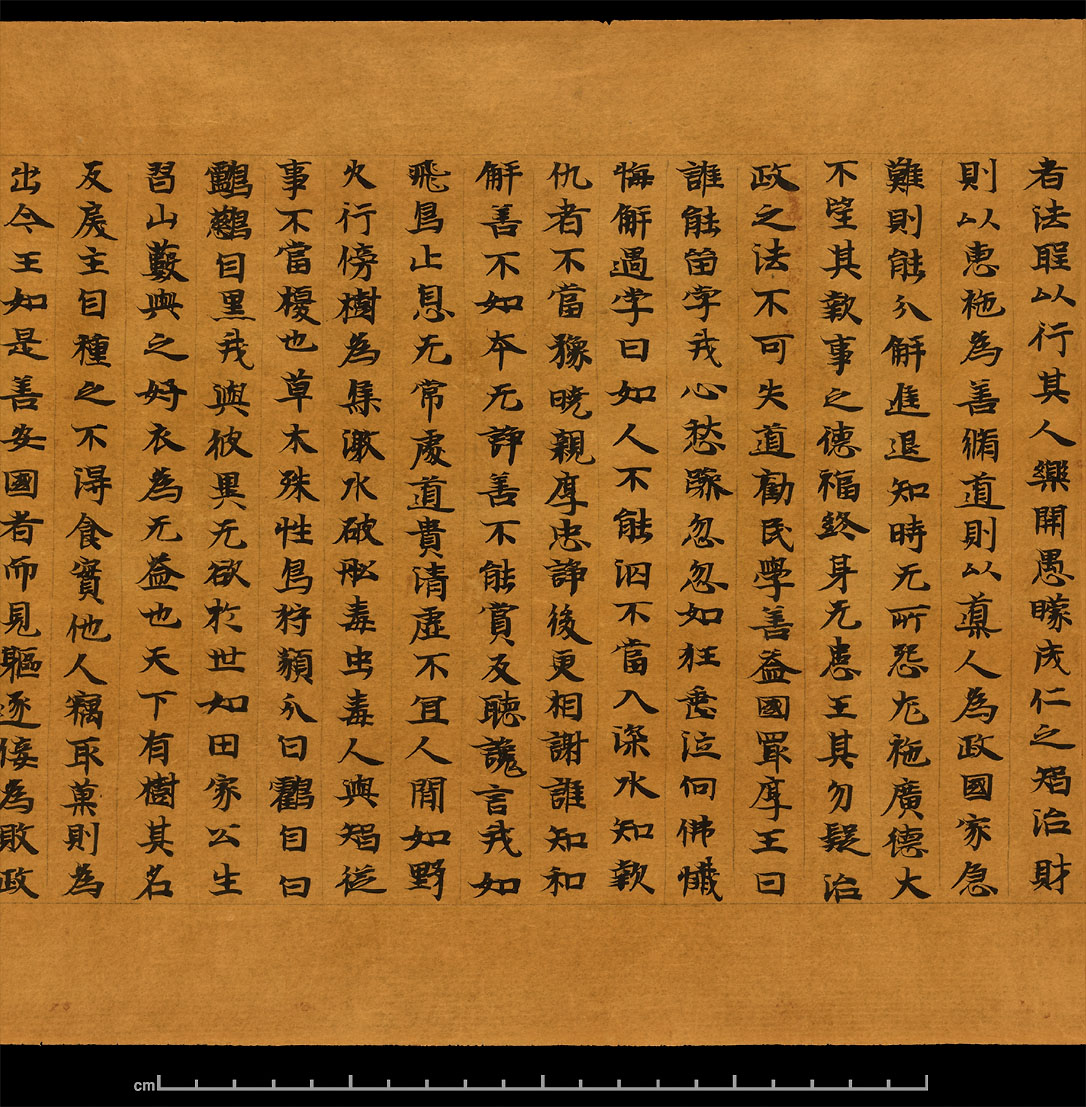 者法聖以行其人樂開愚曚成仁之智治財
則以惠施為善脩道則以導人為政國家急
難則能分解進退知時无所怨尤施廣德大
不望其歎事之德福終身无患王其勿疑治
政之法不可失道勸民學善益國最厚王曰
誰能留孛我心愁蹶忽忽如狂垂泣向佛懺
悔解過孛曰如人不能泅不當入深水知歎
仇者不當豫曉親厚忠諍後更相謝誰知和
解善不如本无諍善不能賞反聽讒言我如
飛鳥止息无常處道貴清虛不宜人間如野
火行傍樹為集激水破船毒虫毒人與智從
事不當擾也草木殊性鳥狩類分白鶴自白
鸕鷀自黑我與彼異无欲於世如田家公生
習山藪與之好衣為无益也天下有樹其名
反戾主自種之不得食實他人竊取菓則為
出今王如是善安國者而見驅逐佞為敗政
cm